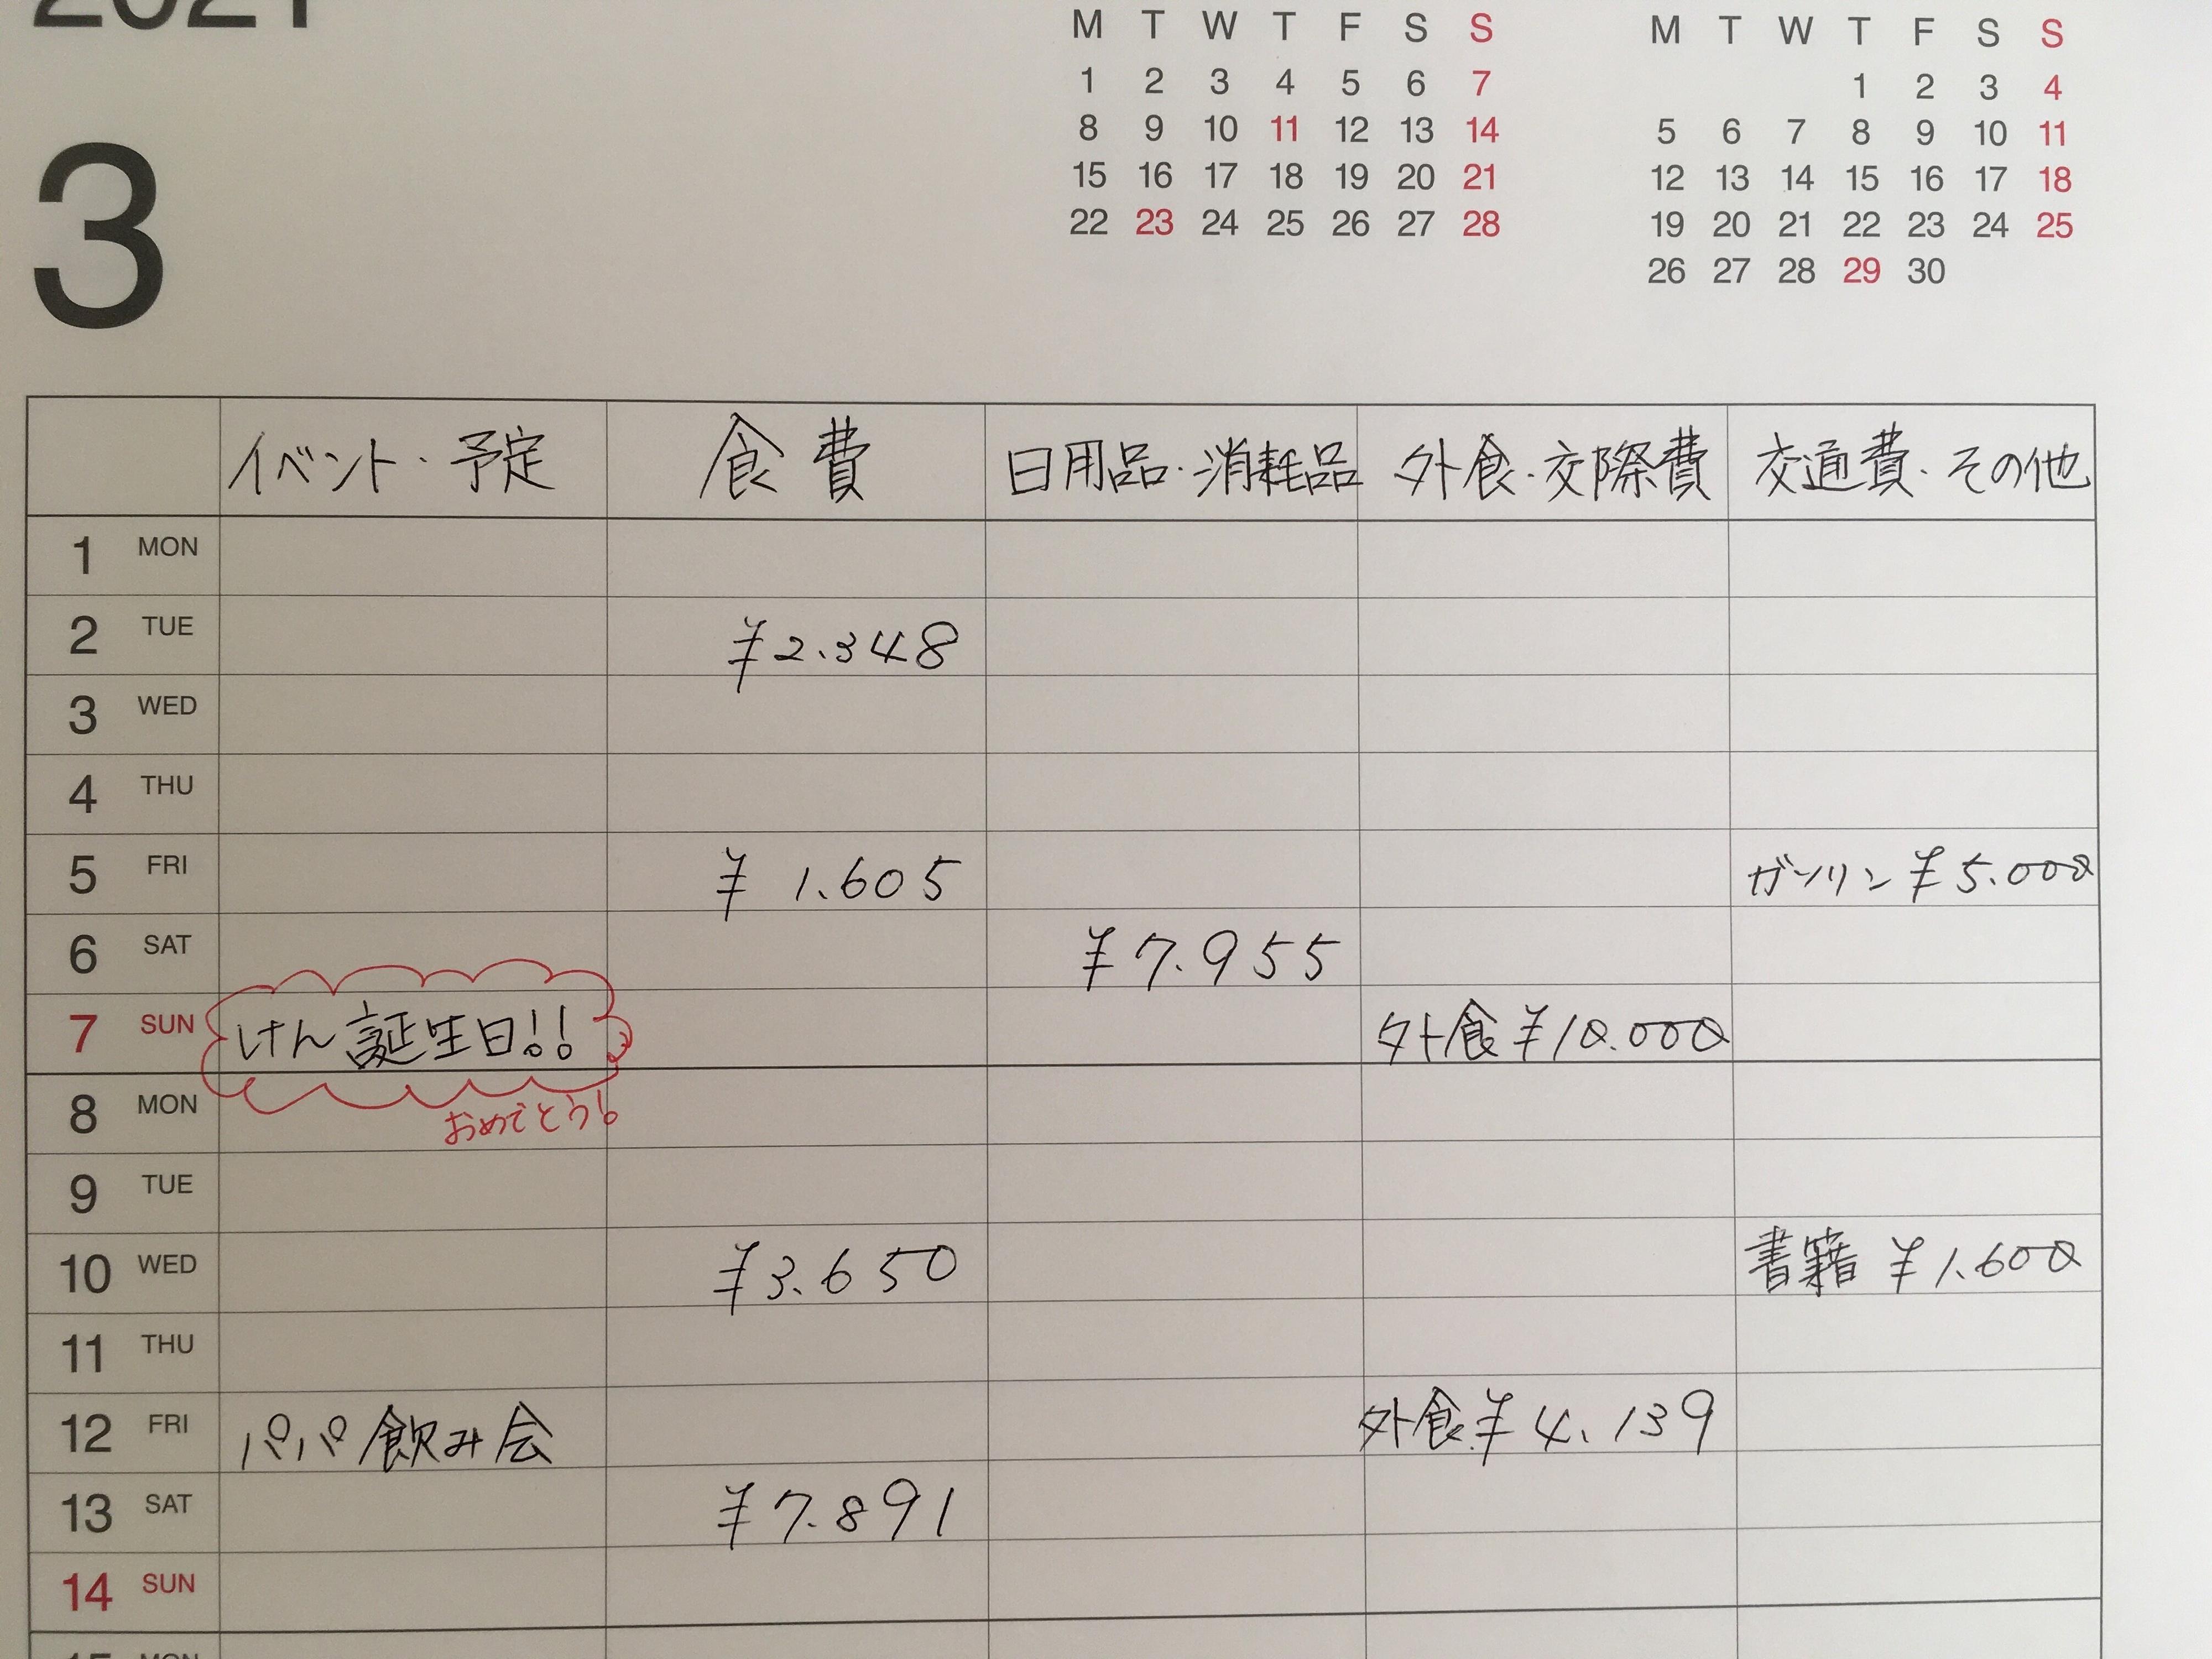 2021
3
M T W T F S S
1 2 3 4 5 6 7
8 9 10 11 12 13 14
15 16 17 18 19 20 21
22 23 24 25 26 27 28
M T W T F S S
1 2 3 4
5 6 7 8 9 10 11
12 13 14 15 16 17 18
19 20 21 22 23 24 25
26 27 28 29 30
イベント・予定 食費 日用品・消耗品 外食・交際費 交通費・その他
1 MON
2 TUE ¥2.348
3 WED
4 THU
5 FRI ¥1.605 ガソリン ¥5.000
6 SAT ¥7.955
7 SUN けん誕生日!! 外食 ¥10.000
おめでとう!
8 MON
9 TUE
10 WED ¥3.650 書籍 ¥1.600
11 THU
12 FRI パパ飲み会 外食 ¥4.139
13 SAT ¥7.891
14 SUN
15 MON